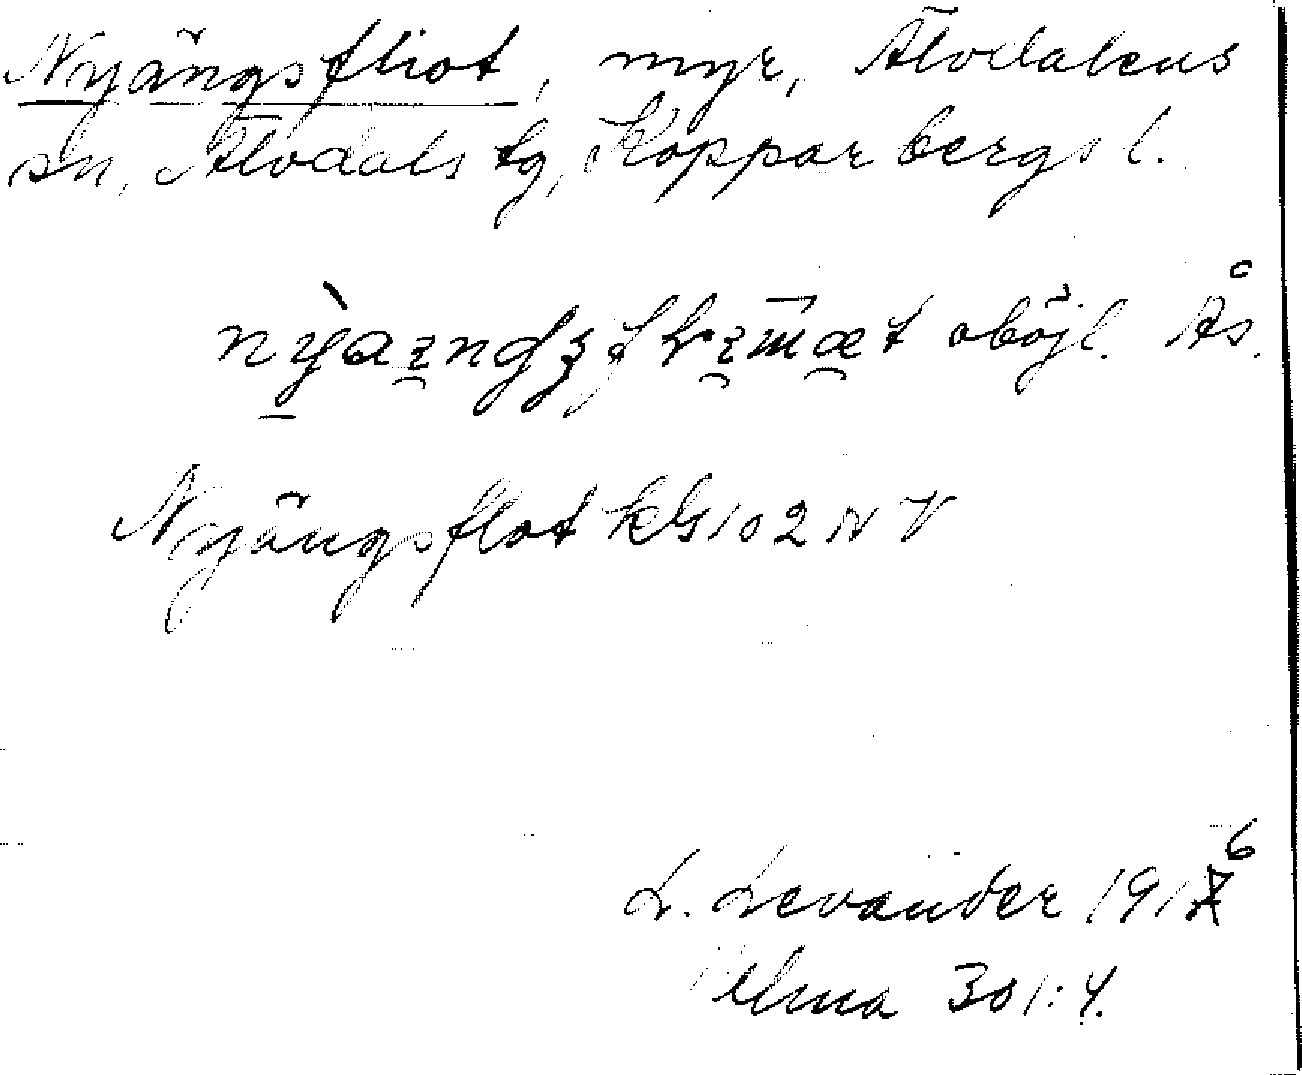 Nyängsfliot, myr, Älvdalens
sn, Älvdals tg, Kopparbergs l.
oböjl. Ås.
Nyängsflot kG102 NV
L. Levander 1916
Ulma 301:4.